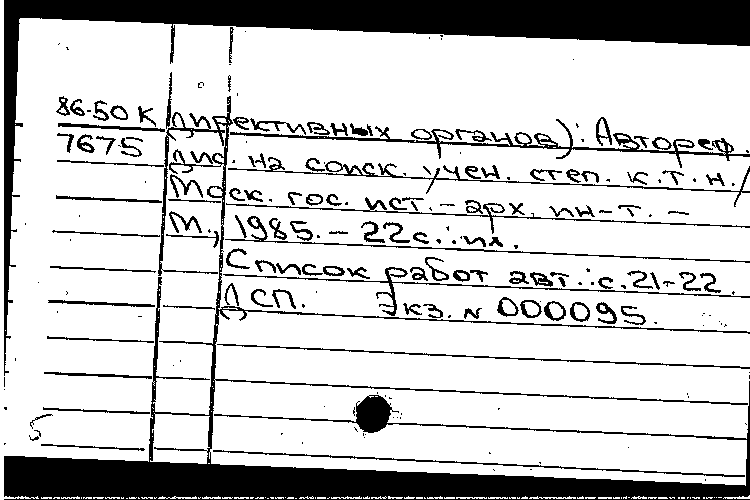 86-50К директивных органов): Автореф.
7675 дис. на соиск. учен. степ. к.т.н./
Моск. гос. ист.-арх. ин-т. –
М., 1985. – 22с.:ил.
Список работ авт.:с.21-22.
ДСП. Экз. N 000095.
5